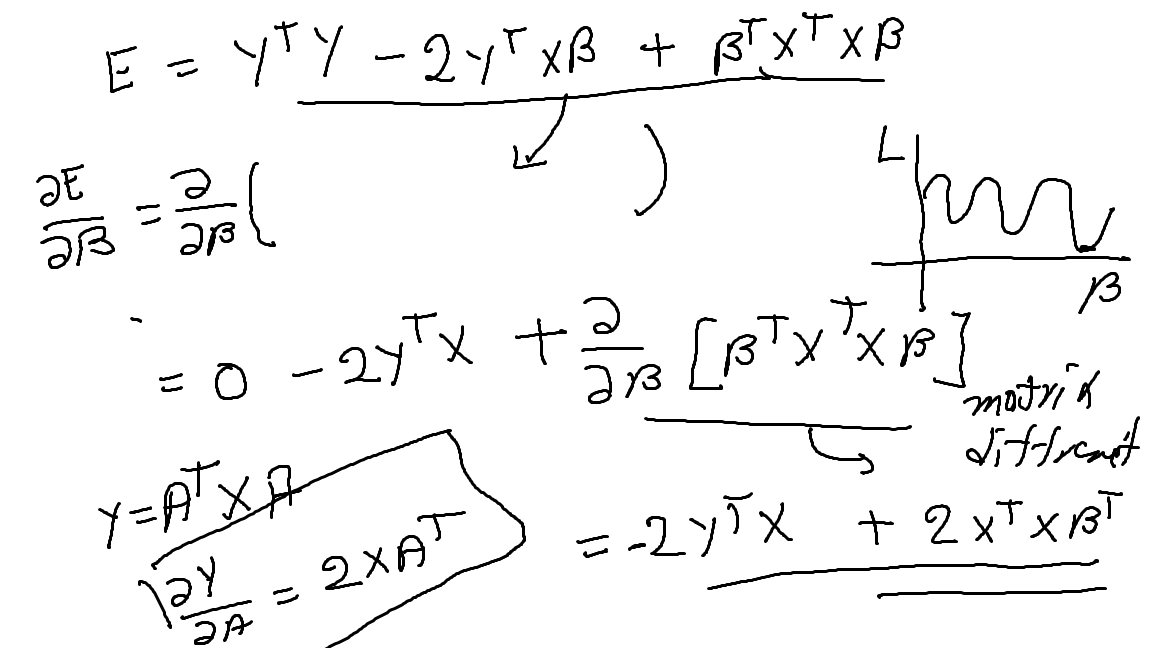 E = Y^T Y - 2 Y^T X β + β^T X^T X β
∂E/∂β = ∂/∂β ( )
L
β
= 0 - 2Y^T X + ∂/∂β [β^T X^T X β]
matrix
Y = A^T X A
∂Y/∂A = 2XA^T
= -2Y^T X + 2X^T X β^T